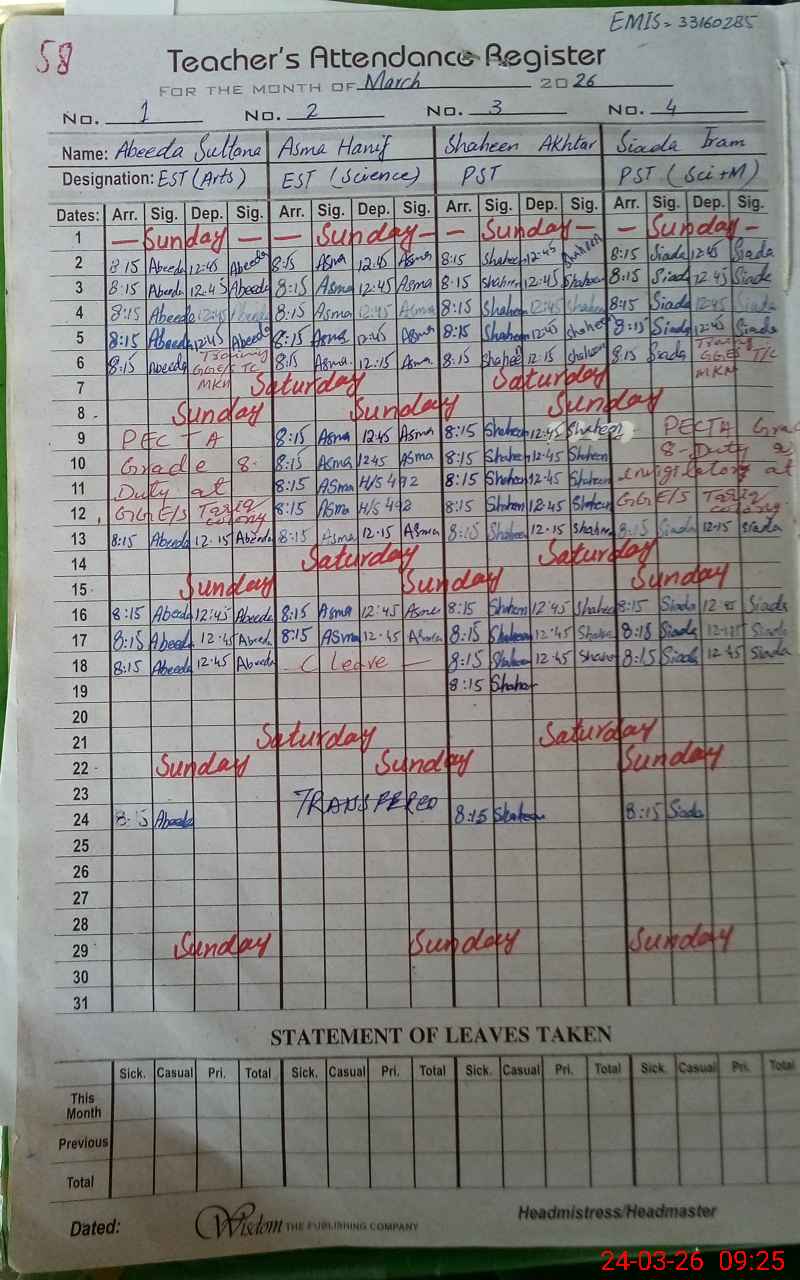 EMIS - 33160285
58
Teacher's Attendance Register
FOR THE MONTH OF March 2026
No. 1 No. 2 No. 3 No. 4
Name: Abeeda Sultana Asma Hanif Shaheen Akhtar Siada Iram
Designation: EST (Arts) EST (Science) PST PST (Sci+M)
Dates: Arr. Sig. Dep. Sig. Arr. Sig. Dep. Sig. Arr. Sig. Dep. Sig. Arr. Sig. Dep. Sig.
1 — Sunday — — Sunday — — Sunday — — Sunday —
2 8:15 Abeeda 12:45 Abeeda 8:15 Asma 12:45 Asma 8:15 Shaheen 12:45 Shaheen 8:15 Siada 12:45 Siada
3 8:15 Abeeda 12:45 Abeeda 8:15 Asma 12:45 Asma 8:15 Shaheen 12:45 Shaheen 8:15 Siada 12:45 Siada
4 8:15 Abeeda 12:45 Abeeda 8:15 Asma 12:45 Asma 8:15 Shaheen 12:45 Shaheen 8:15 Siada 12:45 Siada
5 8:15 Abeeda 12:45 Abeeda 8:15 Asma 12:45 Asma 8:15 Shaheen 12:45 Shaheen 8:15 Siada 12:45 Siada
6 8:15 Abeeda Training GGE/S TC MKN 8:15 Asma 12:15 Asma 8:15 Shaheen 12:15 Shaheen 8:15 Siada Training GGES T/C MKN
7 Saturday Saturday
8 Sunday Sunday Sunday
9 PECTA 8:15 Asma 12:45 Asma 8:15 Shaheen 12:45 Shaheen PECTA Grad
10 Grade 8 8:15 Asma 12:45 Asma 8:15 Shaheen 12:45 Shaheen 8-Duty a
11 Duty at 8:15 ASma H/S 492 8:15 Shaheen 12:45 Shaheen invigilators at
12 GGE/S Tariq colony 8:15 ASma H/S 492 8:15 Shaheen 12:45 Shaheen GGE/S Tariq colony
13 8:15 Abeeda 12.15 Abeeda 8:15 Asma 12.15 ASma 8:15 Shaheen 12.15 Shaheen 8:15 Siada 12:15 Siada
14 Saturday Saturday
15 Sunday Sunday Sunday
16 8:15 Abeeda 12:45 Abeeda 8:15 Asma 12:45 Asma 8:15 Shaheen 12:45 Shaheen 8:15 Siada 12:45 Siada
17 8:15 Abeeda 12:45 Abeeda 8:15 ASma 12:45 Asma 8:15 Shaheen 12:45 Shaheen 8:15 Siada Siada
18 8:15 Abeeda 12:45 Abeeda C Leave — 8:15 Shaheen 12:45 Shaheen 8:15 Siada 12:45 Siada
19 8:15 Shaheen
20
21 Saturday Saturday
22 Sunday Sunday Sunday
23
24 8:15 Abeeda TRANSFERED 8:15 Shaheen 8:15 Siada
25
26
27
28
29 Sunday Sunday Sunday
30
31
STATEMENT OF LEAVES TAKEN
Sick. Casual Pri. Total Sick. Casual Pri. Total Sick. Casual Pri. Total Sick. Casual Pri. Total
This Month
Previous
Total
Dated: Wisdom THE PUBLISHING COMPANY Headmistress/Headmaster
24-03-26 09:25